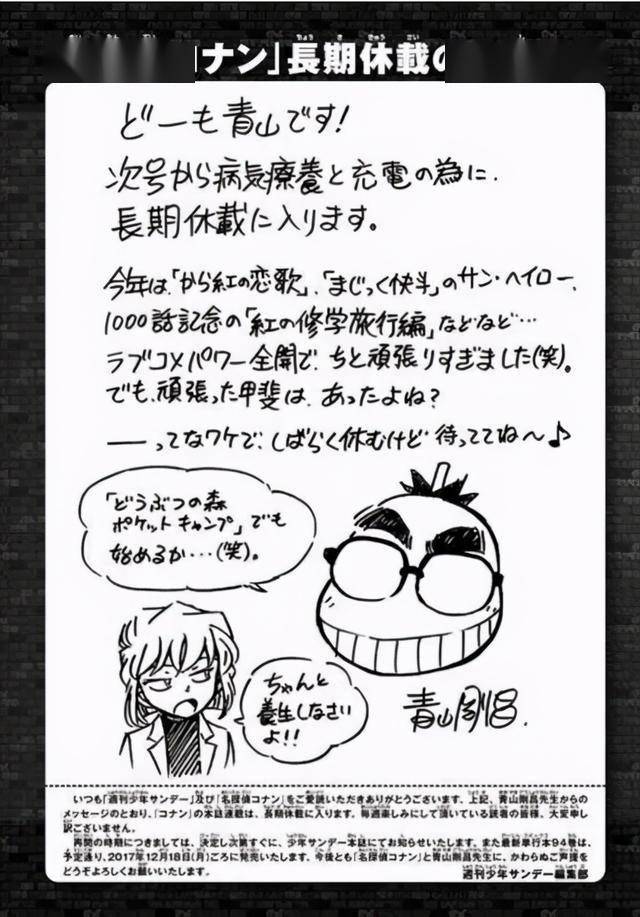 ナン」長期休載の
どーも青山です!
次号から病気療養と充電の為に、
長期休載に入ります。
今年は、「から紅の恋歌」、「まじっく快斗」のサン・ヘイロー、
1000話記念の「紅の修学旅行編」などなど…
ラブコメパワー全開で、ちと頑張りすぎました(笑)。
でも、頑張った甲斐は、あったよね?
――ってなワケで、しばらく休むけど 待っててね〜♪
「どうぶつの森
ポケットキャンプ」でも
始めるか…(笑)。
ちゃんと
養生しなさい
よ!!
青山剛昌.
いつも「週刊少年サンデー」及び「名探偵コナン」をご愛読いただきありがとうございます。上記、青山剛昌先生からの
メッセージのとおり、「コナン」の本誌連載は、長期休載に入ります。毎週楽しみにして頂いている読者の皆様、大変申し
訳ございません。
再開の時期につきましては、決定し次第すぐに、少年サンデー本誌にてお知らせいたします。また最新単行本94巻は、
予定通り、2017年12月18日(月)ごろに発売いたします。今後とも「名探偵コナン」と青山剛昌先生に、かわらぬご声援を
どうぞよろしくお願いいたします。
週刊少年サンデー編集部